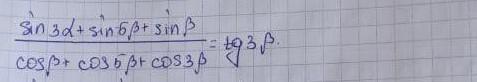 sin 3α + sin 5β + sin β
cos β + cos 5β + cos 3β = tg 3β.